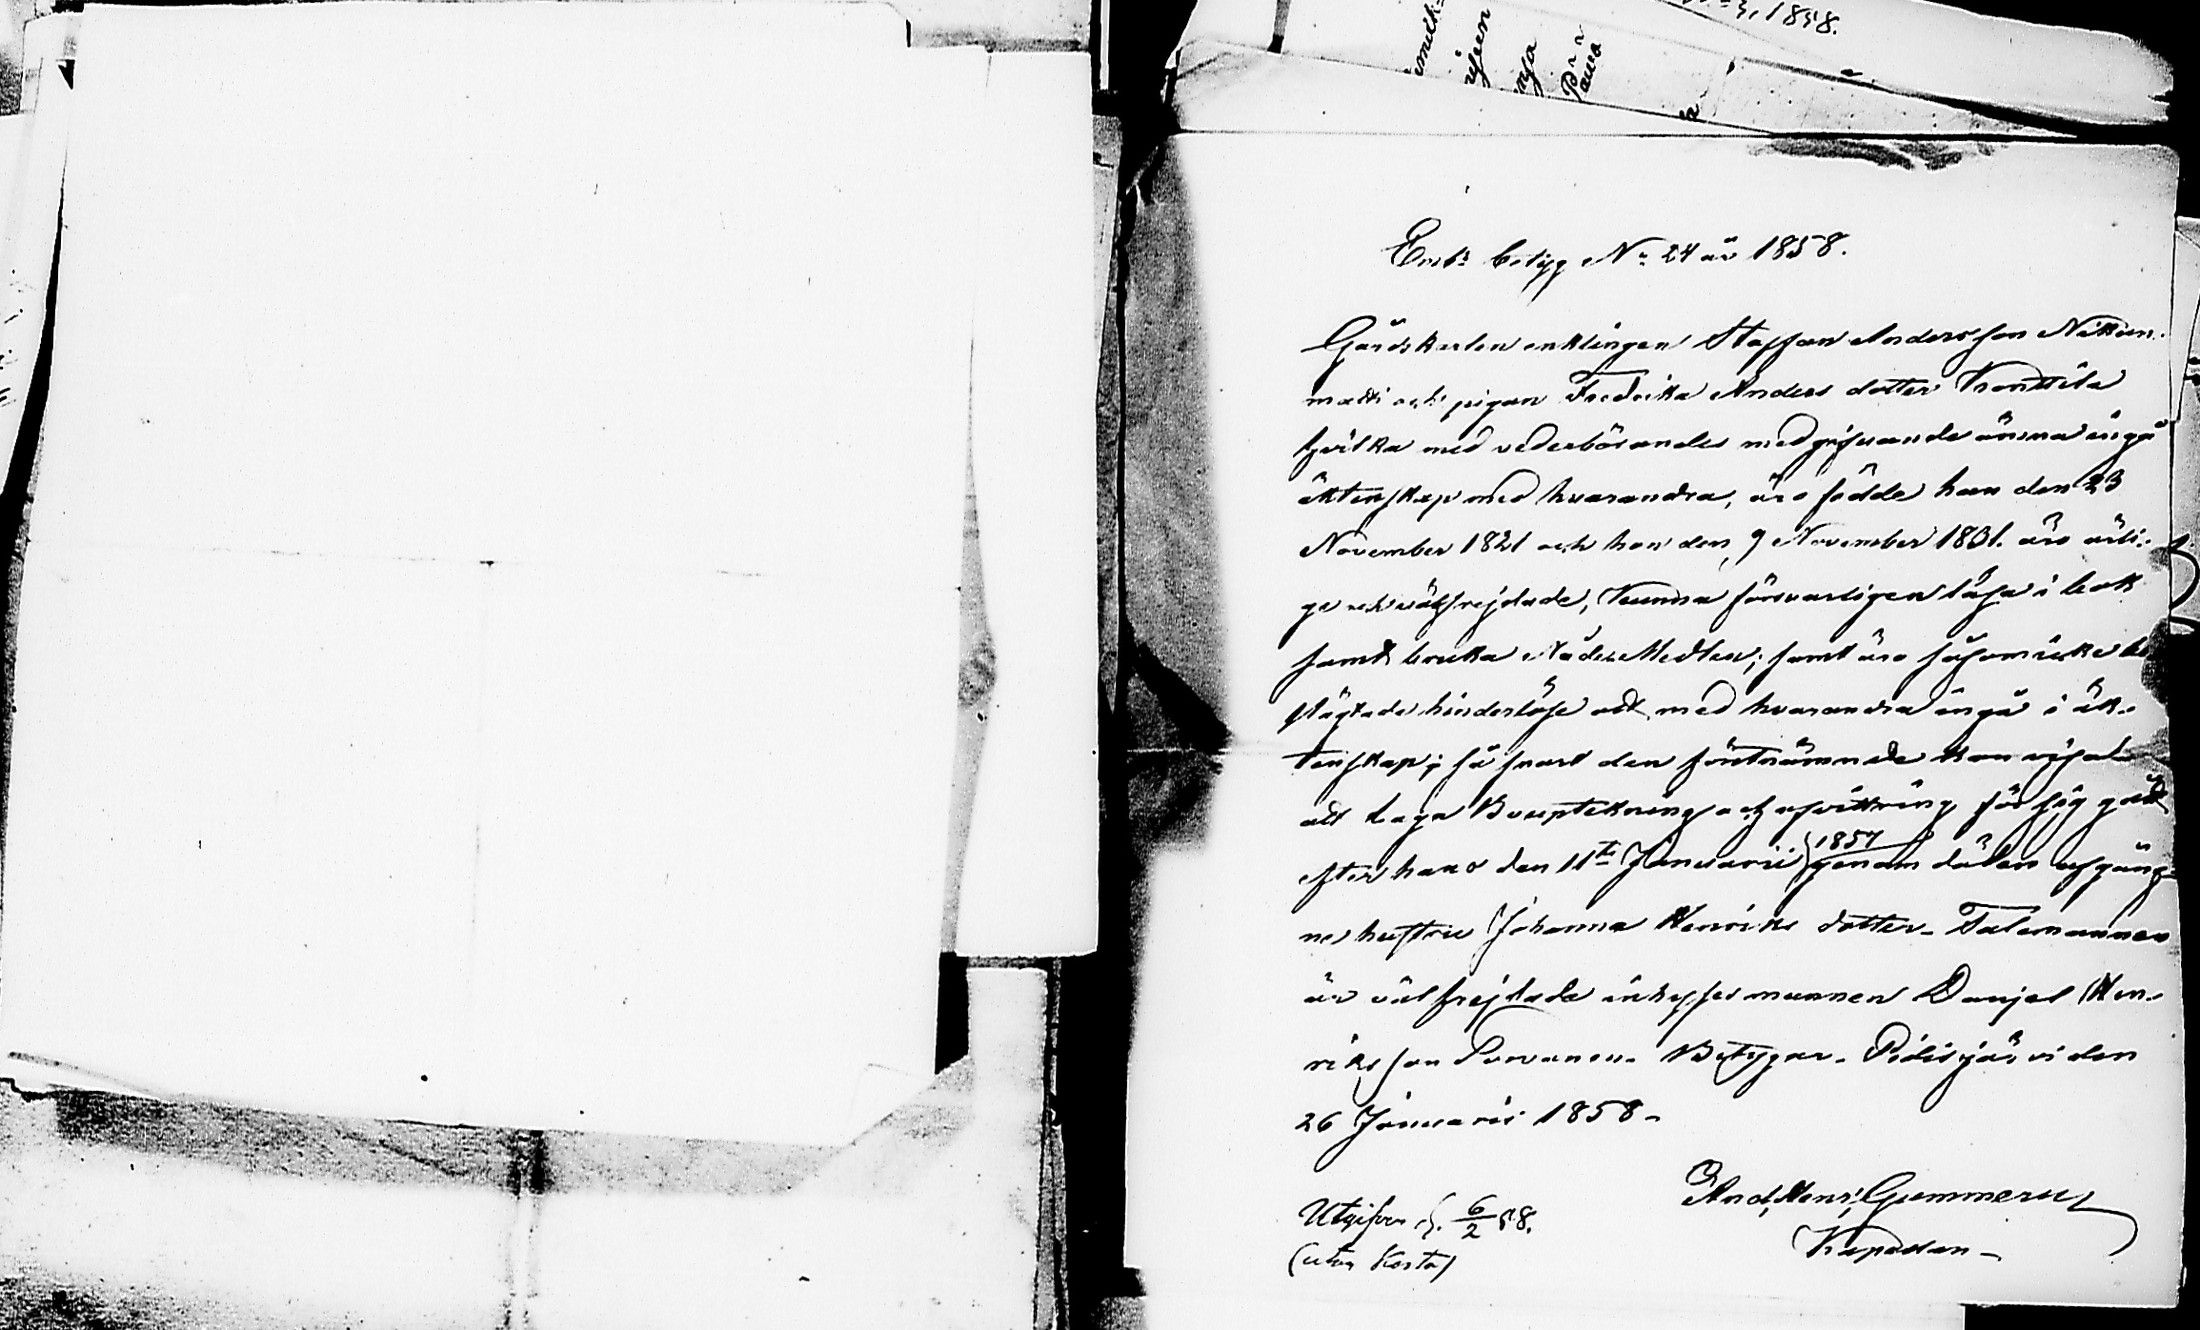 N:o 3, 1858.
Emb:s betyg N:o 24 år 1858.
Gårdskarlen enklingen Staffan Andersson Nikkun-
matti och pigan Fredrika Anders dotter Konttila
hvilka med vederbörandes medgifvande ämna ingå
äktenskap med hvarandra, äro födde han den 23
November 1821 och hon den 9 November 1831. äro ärli-
ge och välfrejdade, kunna försvarligen läsa i bok
samt bruka Nåder Medlen; samt äro såsom icke be
slägtade hinderlöse att med hvarandra ingå i äk-
tenskap; så snart den förstnämnde kan
att laga Bouptekning och afvittring för sig gått
efter hans den 11te Januarii 1857 genom döden afgång-
ne hustru Johanna Henriks dotter. Talemannen
är välfrejdade inhysesmannen Danjel Hen-
riksson Purvanen. Betygar. Pidisjärvi den
26 Januarii 1858.
And. Henr. Gummerus
Kapellan
Utgifven d. 6/2 58.
(utan Kosta)